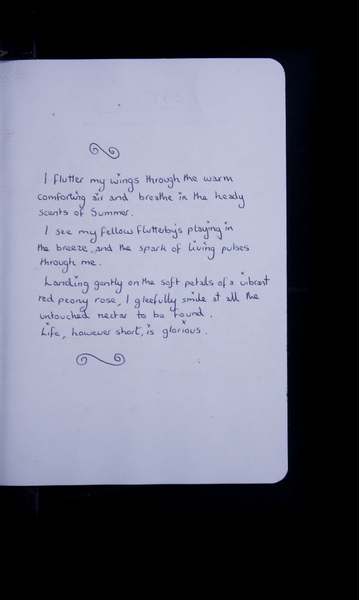 I flutter my wings through the warm
comforting air and breathe in the heady
scents of Summer.
I see my fellow flutterby's playing in
the breeze, and the spark of living pulses
through me.
Landing gently on the soft petals of a vibrant
red peony rose, I gleefully smile at all the
untouched nectar to be found.
Life, however short, is glorious.